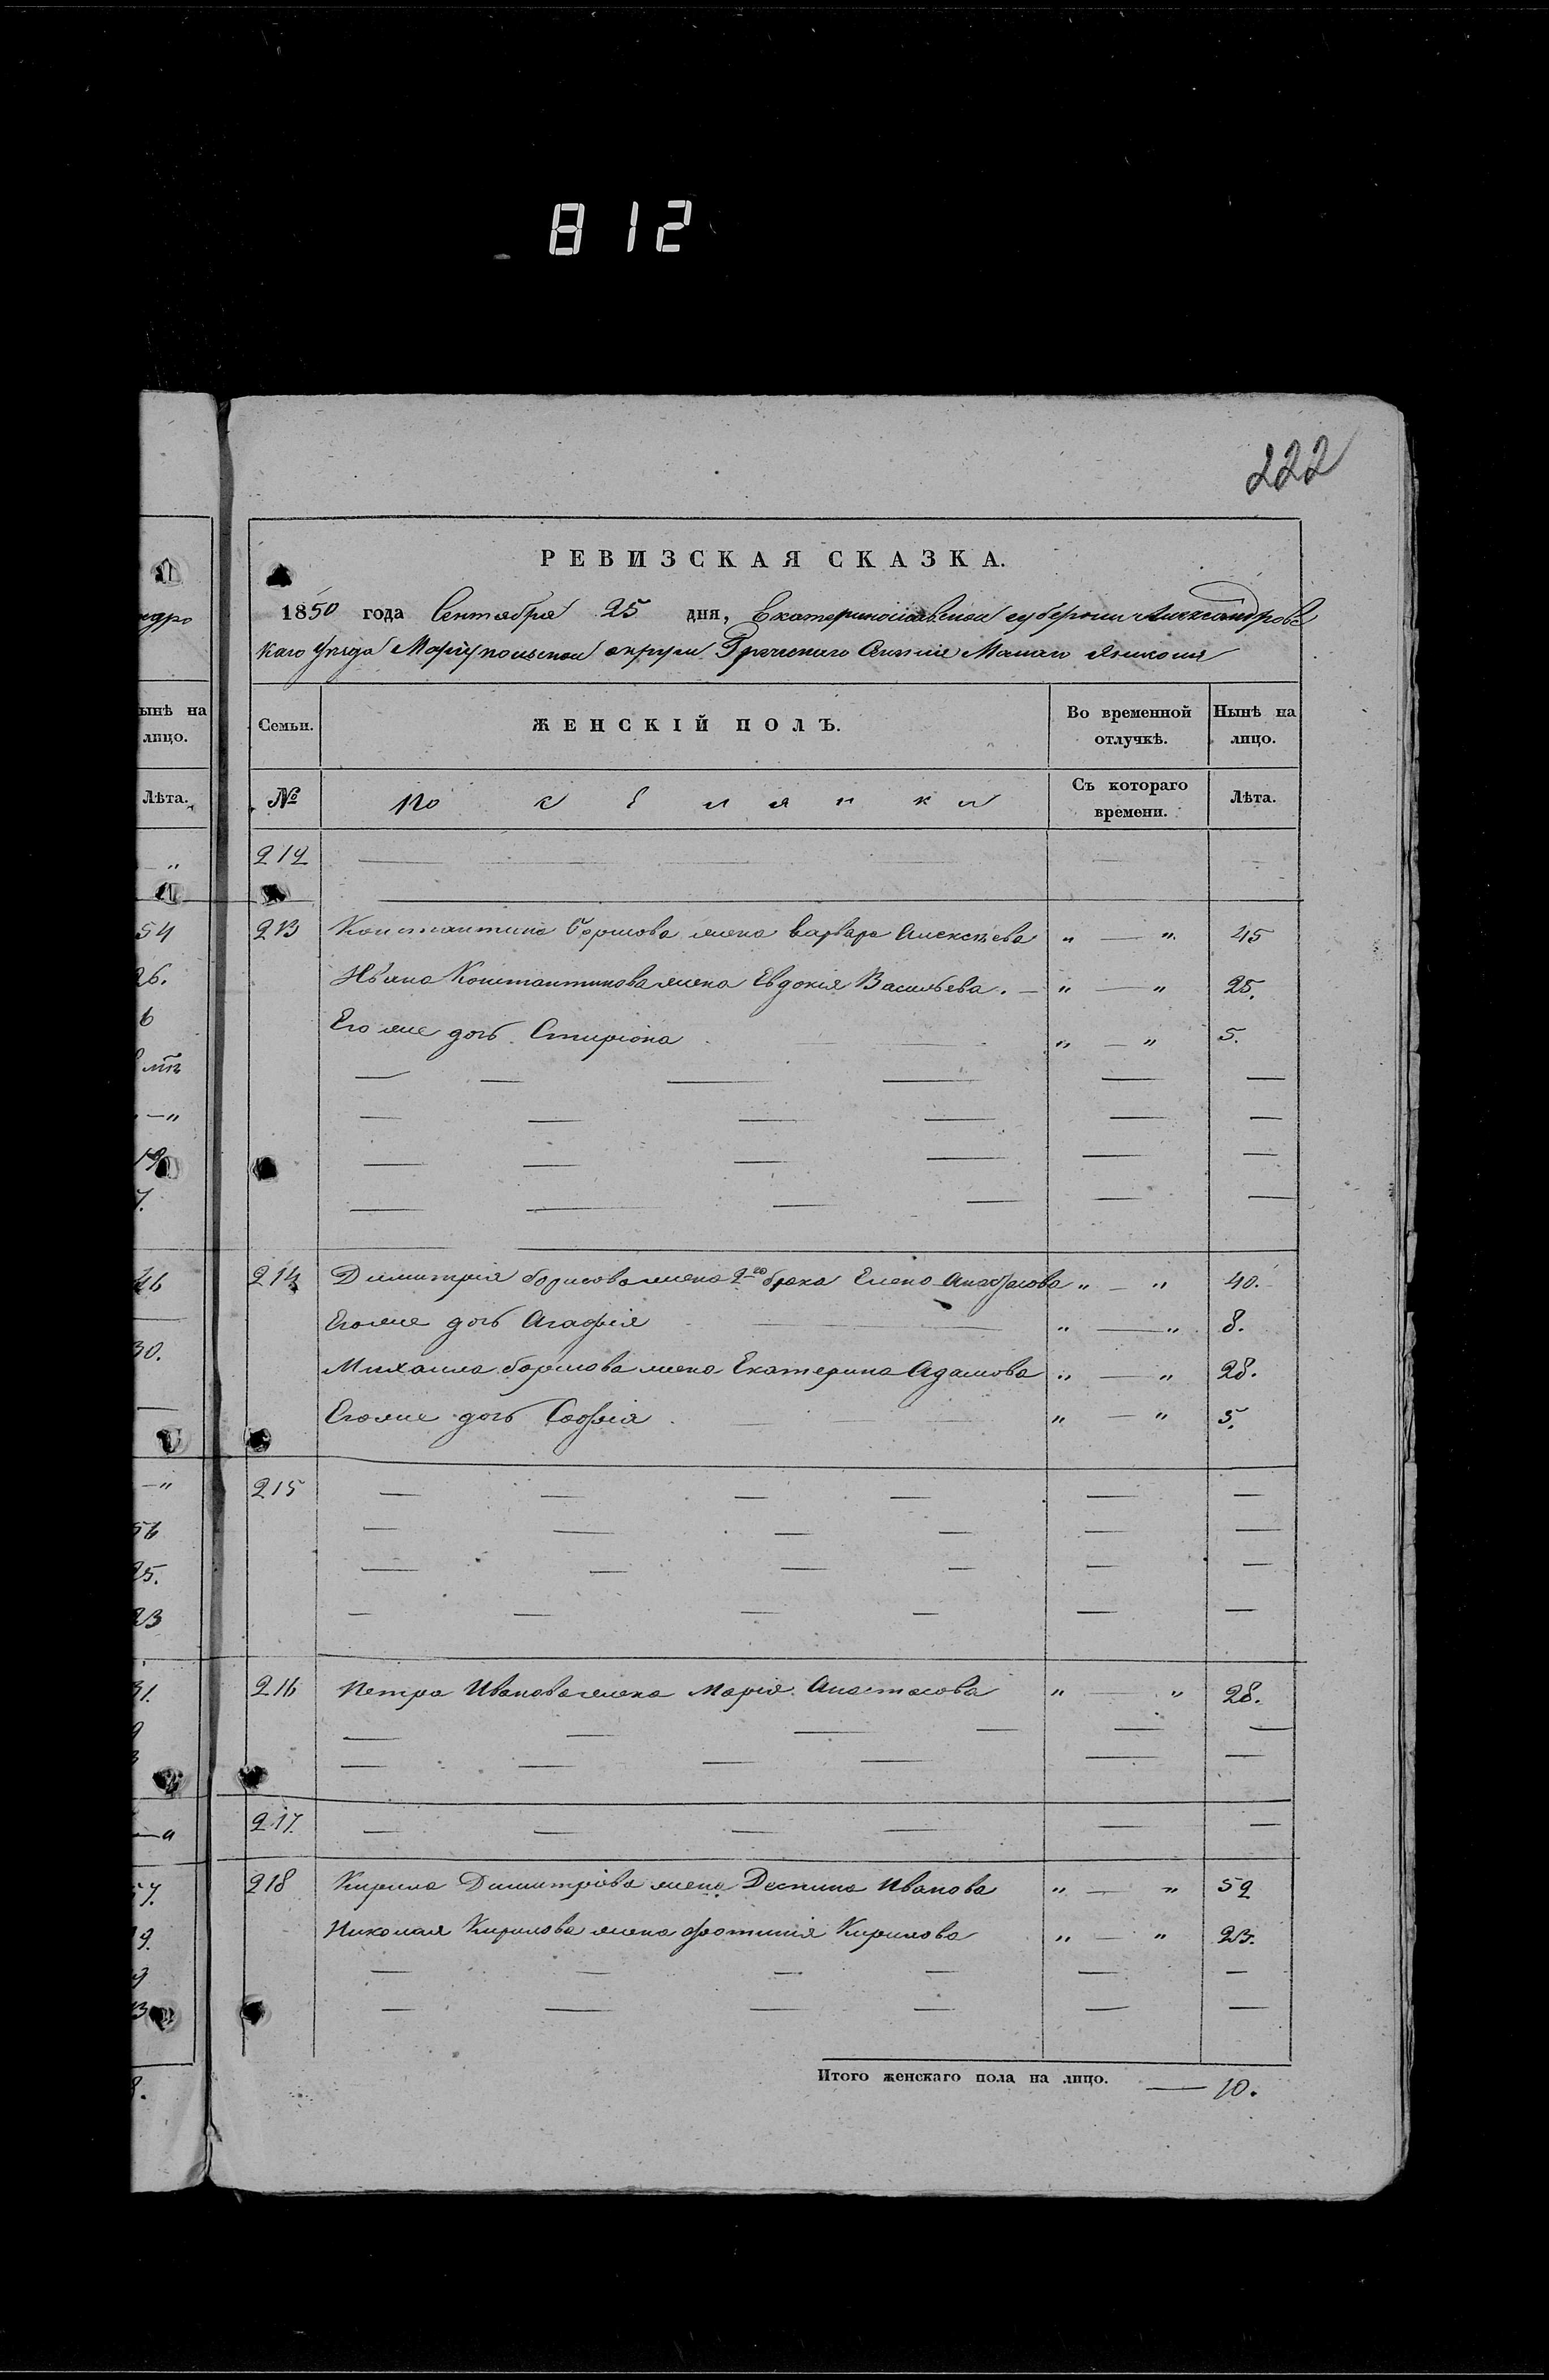 812
222
РЕВИЗСКАЯ СКАЗКА.
1850 года Сентября 25 дня, Екатеринославской губернии Александровс
каго Уезда Мариупольской округи Греческаго Селенiе Малаго Янисоля
Семьи. ЖЕНСКІЙ ПОЛЪ. Во временной отлучкѣ. Нынѣ на лицо.
№ поселянки Съ котораго времени. Лѣта.
212 — — — — — —
213 Константина Борисова жена варвара Алексѣева " — " 45
Ивана Константинова жена Евдокiя Васильева. — " — " 25.
Его же дочь Стирiона " — " 5.
214 Димитрiя борисова жена 2го брака Елена Анастасова " — " 40.
Его же дочь Агафiя " — " 8.
Михаила борисова жена Екатерина Адамова " — " 28.
Его же дочь Софiя " — " 5.
215 — — — — — —
216 Петра Иванова жена Марiя Анастасова " — " 28.
217. — — — — — —
218 Кирила Димитрiева жена Деспина Иванова " — " 59
Николая Кирилова жена фотинiя Кирилова " — " 23.
Итого женскаго пола на лицо. — 10.
ынѣ на
лицо.
Лѣта.
54
26.
6
46
30.
56
25.
23
31.
57.